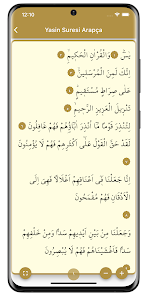 12:10
Yasin Suresi Arapça
يسٓ ﴿١﴾ وَالْقُرْاٰنِ الْحَك۪يمِۙ
اِنَّكَ لَمِنَ الْمُرْسَل۪ينَۙ
عَلٰى صِرَاطٍ مُسْتَق۪يمٍۜ
تَنْز۪يلَ الْعَز۪يزِ الرَّح۪يمِۙ
لِتُنْذِرَ قَوْمًا مَٓا اُنْذِرَ اٰبَٓاؤُ۬هُمْ فَهُمْ غَافِلُونَ
لَقَدْ حَقَّ الْقَوْلُ عَلٰٓى اَكْثَرِهِمْ فَهُمْ لَا يُؤْمِنُونَ
اِنَّا جَعَلْنَا ف۪ٓي اَعْنَاقِهِمْ اَغْلَالًا فَهِيَ اِلَى
الْاَذْقَانِ فَهُمْ مُقْمَحُونَ
وَجَعَلْنَا مِنْ بَيْنِ اَيْد۪يهِمْ سَدًّا وَمِنْ خَلْفِهِمْ
سَدًّا فَاَغْشَيْنَاهُمْ فَهُمْ لَا يُبْصِرُونَ